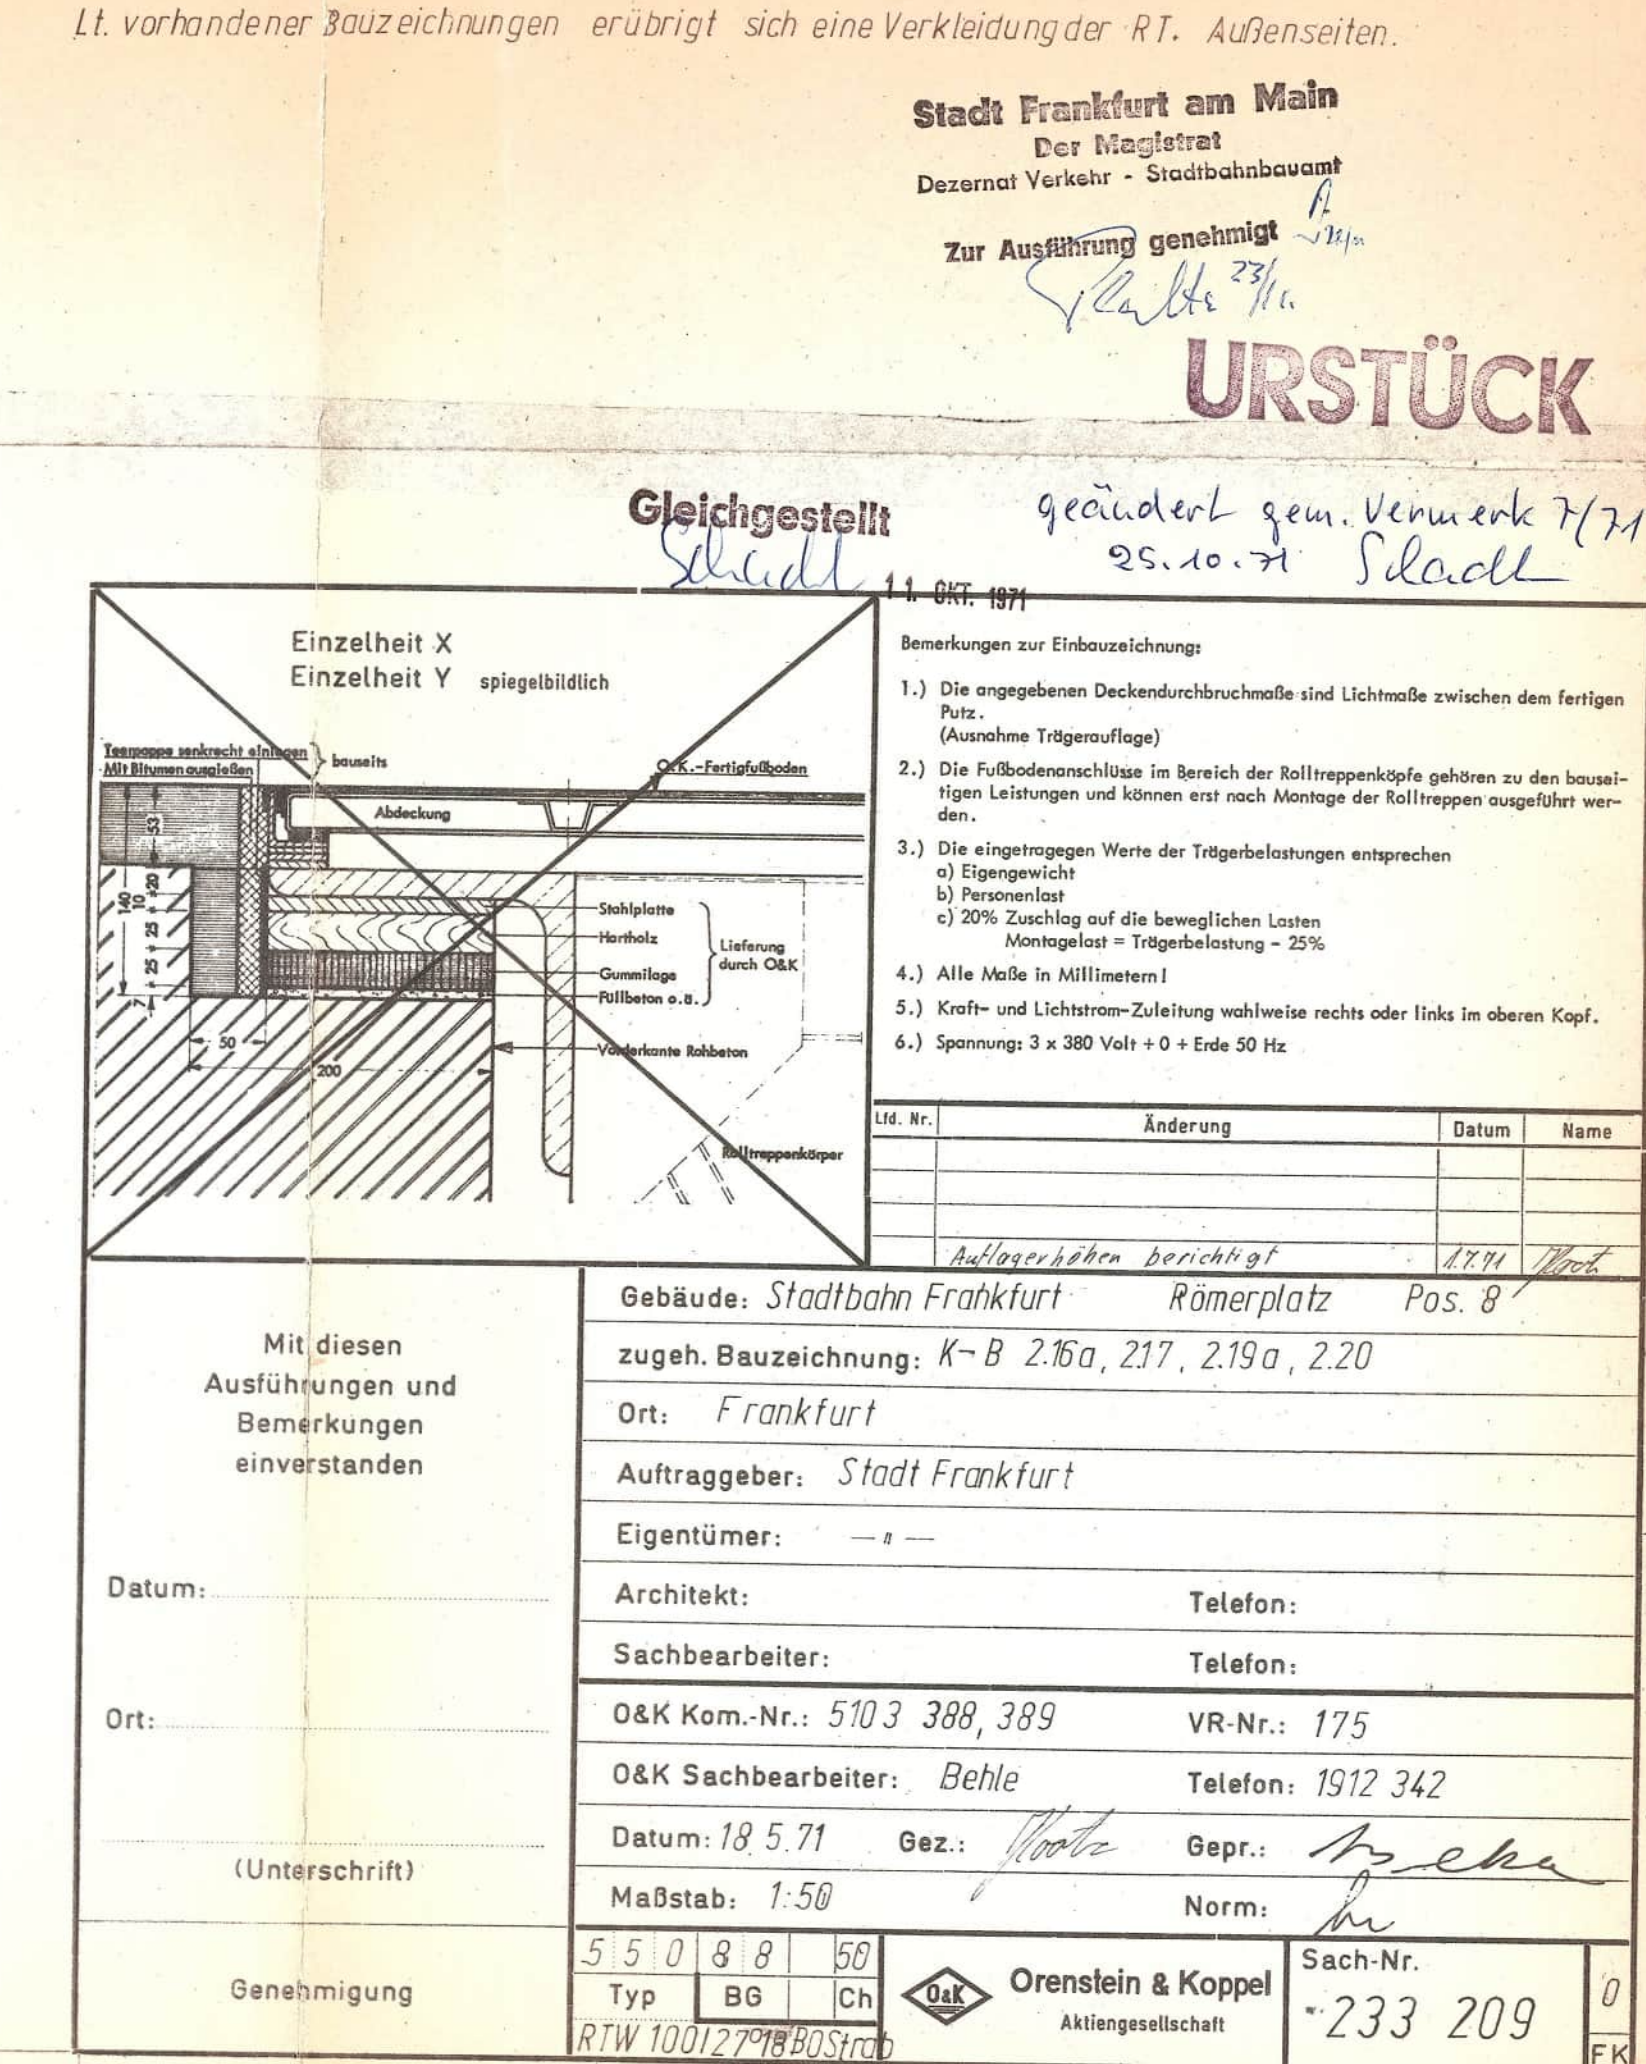 Lt. vorhandener Bauzeichnungen erübrigt sich eine Verkleidung der RT. Außenseiten.
Stadt Frankfurt am Main
Der Magistrat
Dezernat Verkehr - Stadtbahnbauamt
Zur Ausführung genehmigt
23/11.
URSTÜCK
Gleichgestellt
geändert gem. Vermerk 7/71
25.10.71 Schadt
11. OKT. 1971
Einzelheit X
Einzelheit Y spiegelbildlich
Teerpappe senkrecht einlegen
Mit Bitumen ausgießen
bauseits
O.K.-Fertigfußboden
Abdeckung
53
20
140
10
25
25
7
50
200
Stahlplatte
Hartholz
Gummilage
Füllbeton o.ä.
Lieferung
durch O&K
Vorderkante Rohbeton
Rolltreppenkörper
Bemerkungen zur Einbauzeichnung:
1.) Die angegebenen Deckendurchbruchmaße sind Lichtmaße zwischen dem fertigen
Putz.
(Ausnahme Trägerauflage)
2.) Die Fußbodenanschlüsse im Bereich der Rolltreppenköpfe gehören zu den bausei-
tigen Leistungen und können erst nach Montage der Rolltreppen ausgeführt wer-
den.
3.) Die eingetragegen Werte der Trägerbelastungen entsprechen
a) Eigengewicht
b) Personenlast
c) 20% Zuschlag auf die beweglichen Lasten
Montagelast = Trägerbelastung - 25%
4.) Alle Maße in Millimetern!
5.) Kraft- und Lichtstrom-Zuleitung wahlweise rechts oder links im oberen Kopf.
6.) Spannung: 3 x 380 Volt + 0 + Erde 50 Hz
Lfd. Nr. Änderung Datum Name
Auflagerhöhen berichtigt 1.7.71
Mit diesen
Ausführungen und
Bemerkungen
einverstanden
Datum:
Ort:
(Unterschrift)
Genehmigung
Gebäude: Stadtbahn Frankfurt Römerplatz Pos. 8
zugeh. Bauzeichnung: K-B 2.16a, 2.17, 2.19a, 2.20
Ort: Frankfurt
Auftraggeber: Stadt Frankfurt
Eigentümer: — " —
Architekt: Telefon:
Sachbearbeiter: Telefon:
O&K Kom.-Nr.: 5103 388, 389 VR-Nr.: 175
O&K Sachbearbeiter: Behle Telefon: 1912 342
Datum: 18.5.71 Gez.: Gepr.:
Maßstab: 1:50 Norm:
5 5 0 8 8 50
Typ BG Ch
O&K
Orenstein & Koppel
Aktiengesellschaft
Sach-Nr.
233 209
0
FK